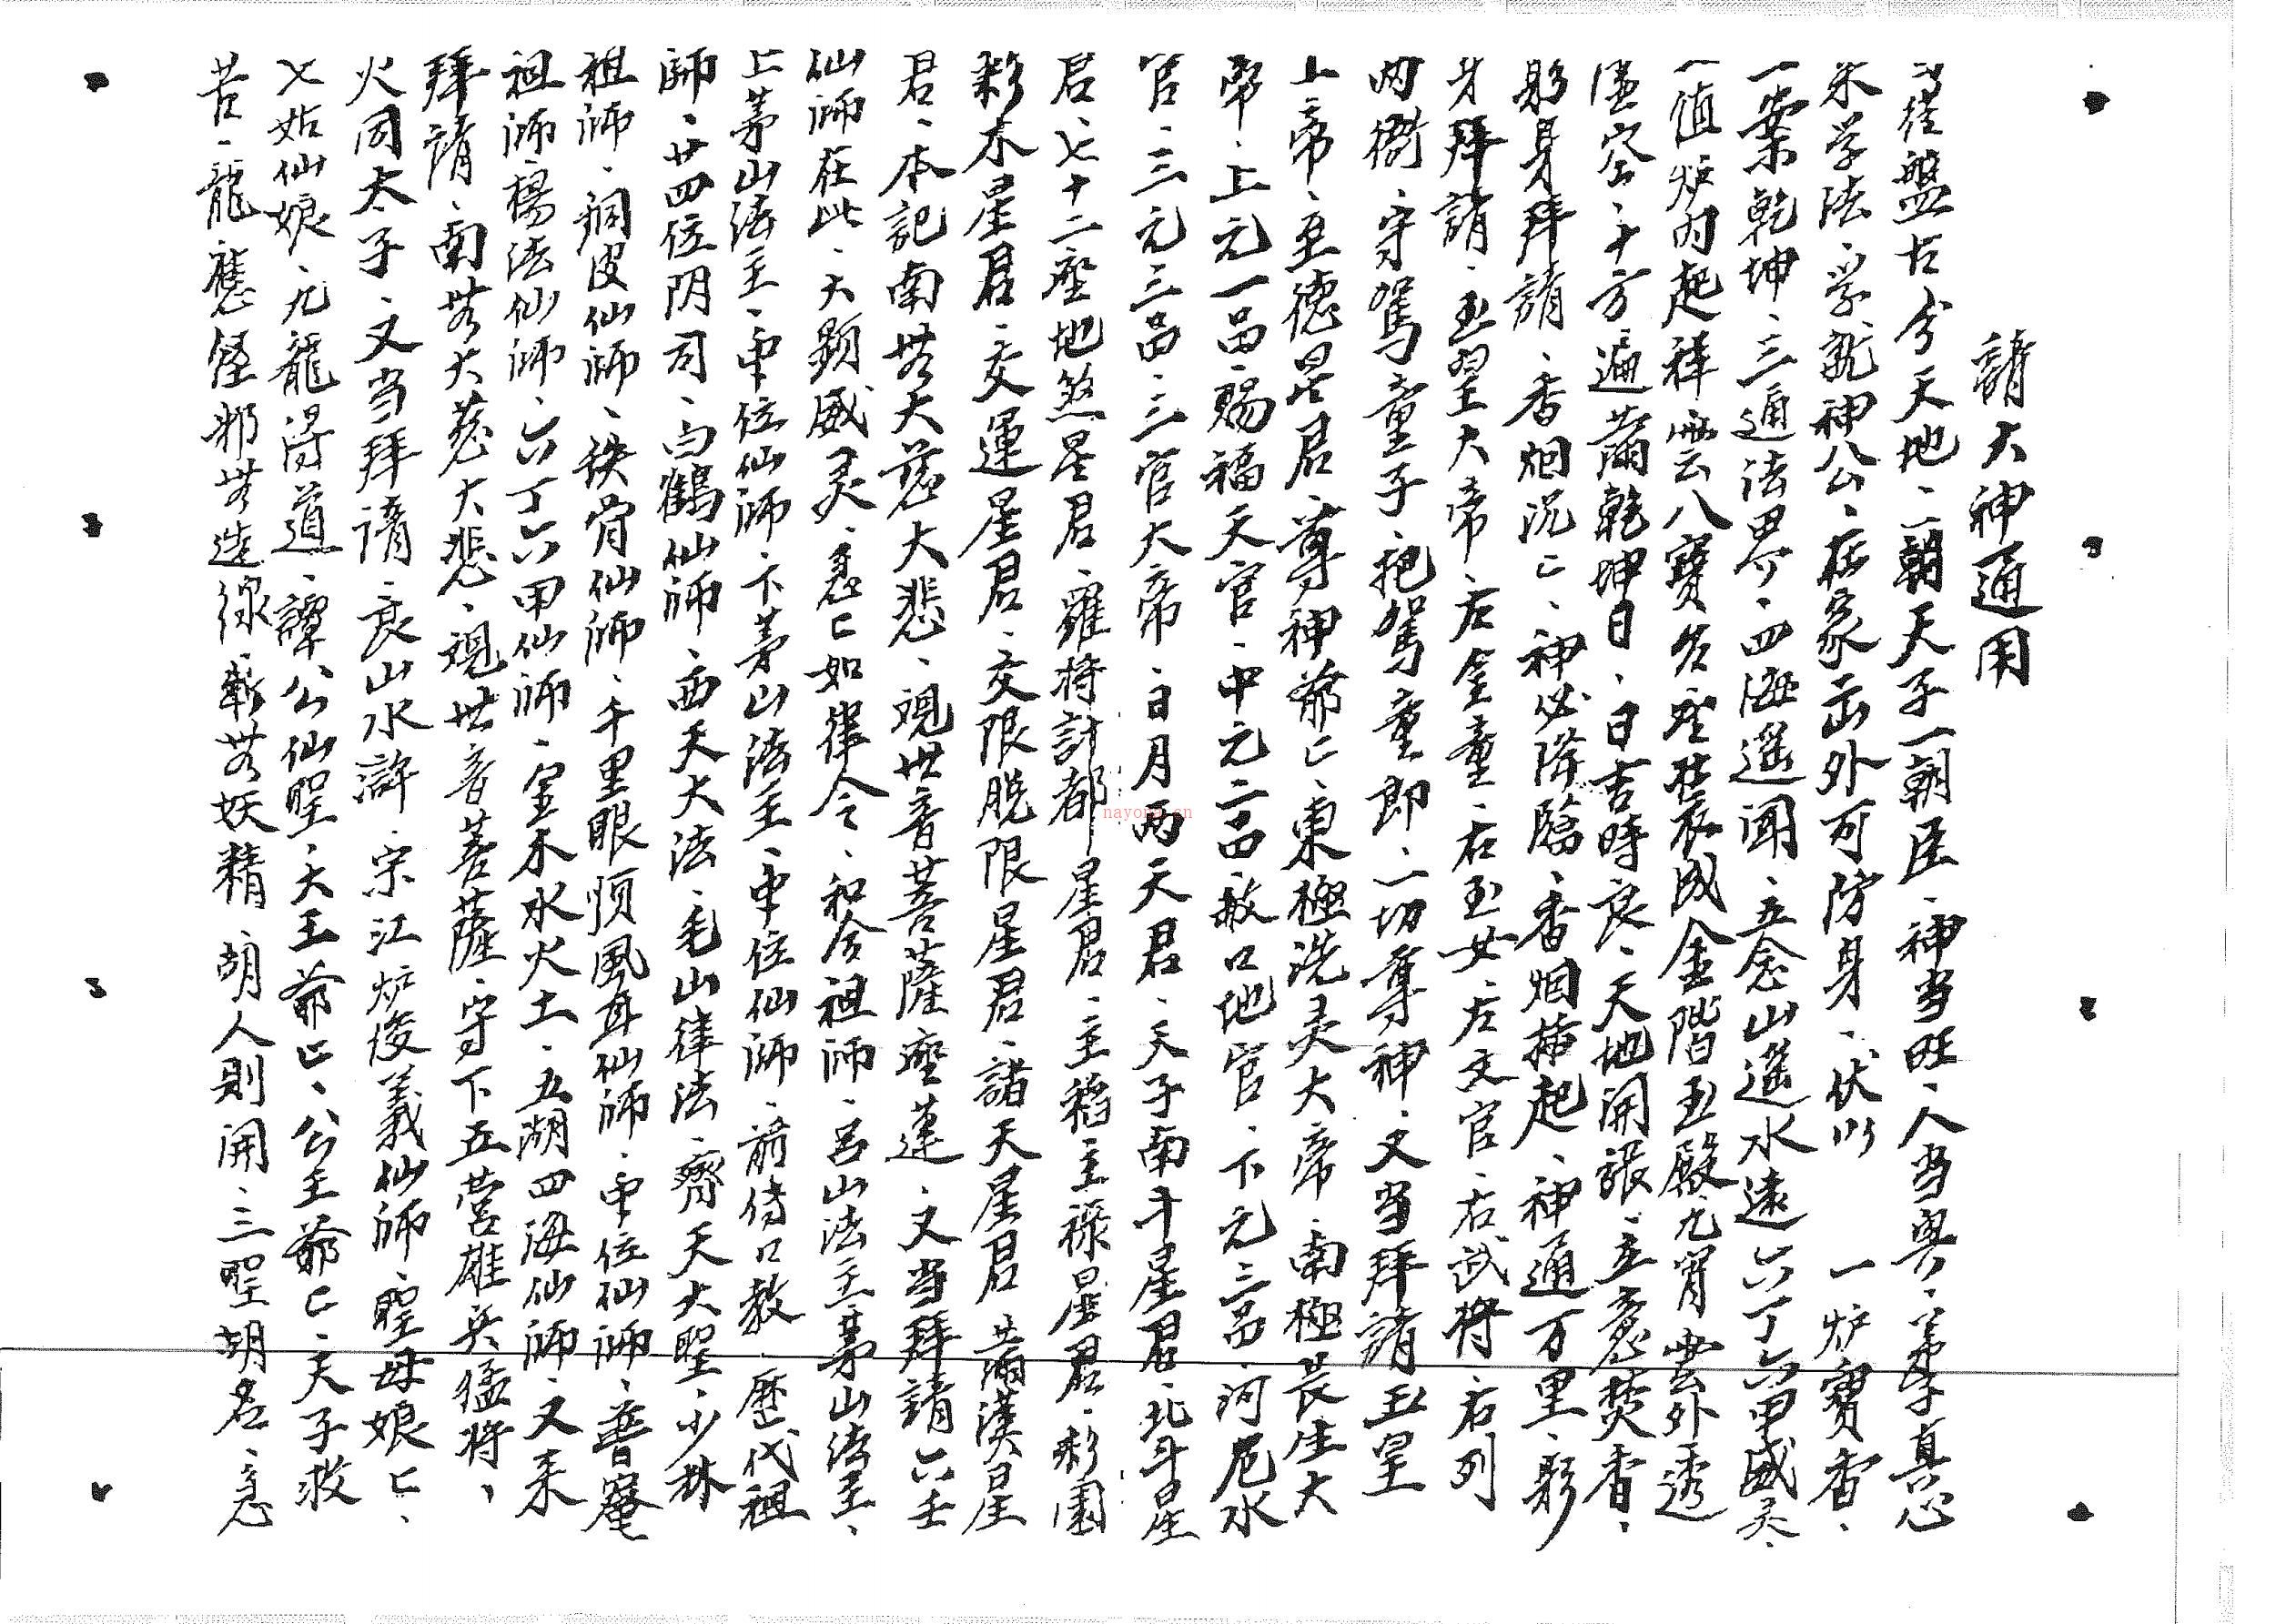 請大神通用
盤古分天地、一朝天子一朝臣、神当旺、人当興、弟子真心
来学法、学就神公、在家出外可防身、伏以 一炉寶香、
一案乾坤、三通法界、四海遥闻、五念山遥水遠六丁六甲威灵、
一值炉内起祥雲八寶 成金階玉殿九霄雲外透
虚空、十方遍满乾坤日、日吉時良、天地開張、立意焚香、
躬身拜請、香烟沉匕、神必降臨、香烟插起、神通万里、躬
身拜請、玉皇大帝、左金童、右玉女、左文官、右武将、右列
两衙、守駕童子、抱駕童郎、一切尊神、又当拜請玉皇
上帝、至德星君、尊神爺匕、東極洗灵大帝、南極長生大
帝、上元一品、赐福天官、中元二品、赦口地官、下元三品、河厄水
官、三元三品、三官大帝、日月两天君、天子南斗星君、北斗星
君、七十二座地煞星君、羅将計都星君、主福主禄星君、彩園
彩木星君、交運星君、交限脱限星君、諸天星君、满漢星
君、本記南無大慈大悲、观世音菩薩座莲、又当拜請六壬
仙师在此、大顕威灵、急匕如律令、和合祖师、吕山法主茅山法主、
上茅山法主、中位仙师、下茅山法主、中位仙师、前傳口教、歷代祖
師、廿四位阴司、白鶴仙师、西天大法、毛山律法、齊天大聖、少林
祖师、銅皮仙师、鉄骨仙师、千里眼順風耳仙师、中位仙师、普庵
祖师、楊法仙师、六丁六甲仙师、金木水火土、五湖四海仙师、又来
拜請、南無大慈大悲、观世音菩薩、守下五营雄兵猛将、
火同太子、又当拜請、良山水滸、宋江炉俊義仙师、聖母娘匕、
七姑仙娘、九龍得道、譚公仙聖、大王爺匕、公王爺匕、天子救
苦、龍 怪邪無 、斬無妖精、胡人則開、三聖胡名、急
nayong.cn